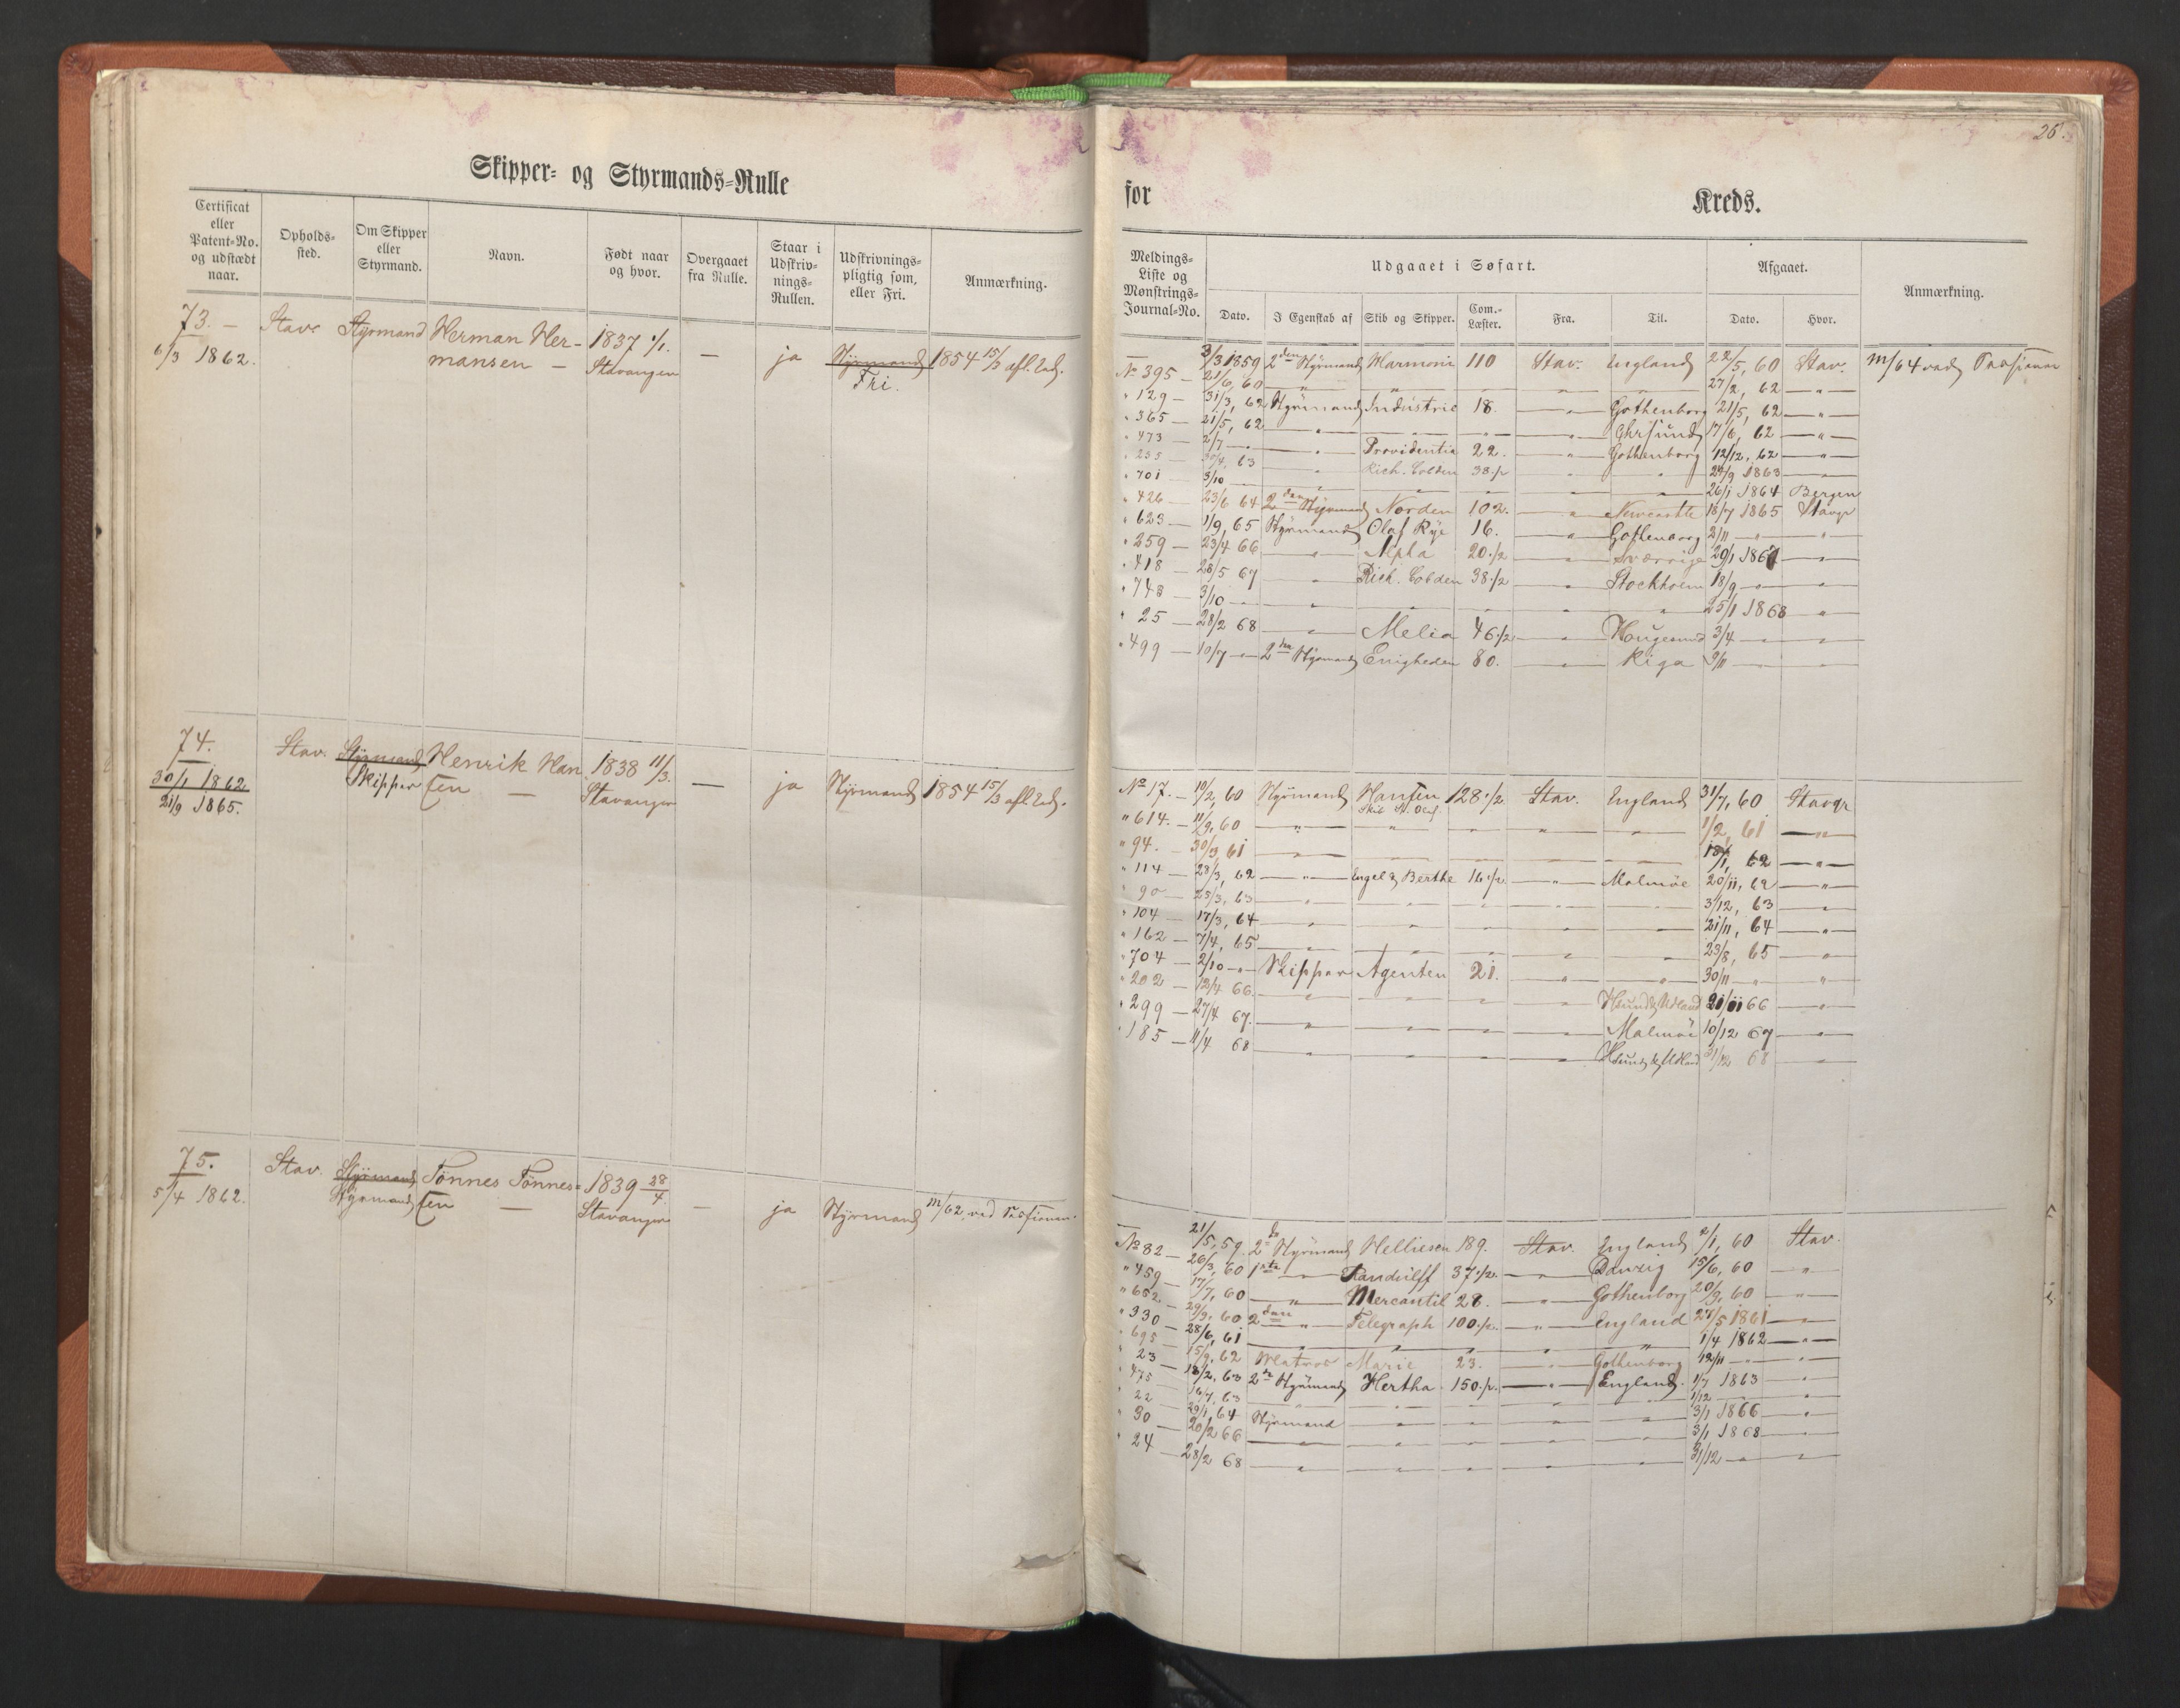 26.
Skipper- og Styrmands-Rulle for Kreds.
Certificat eller Patent-No. og udstædt naar.
Opholds-sted.
Om Skipper eller Styrmand.
Navn.
Født naar og hvor.
Overgaaet fra Rulle.
Staar i Udskriv-nings-Rullen.
Udskrivnings-pligtig som, eller Fri.
Anmærkning.
Meldings-Liste og Mønstrings-Journal-No.
Udgaaet i Søfart.
Dato. I Egenskab af Skib og Skipper. Com.-Læster. Fra. Til.
Afgaaet.
Dato. Hvor.
Anmærkning.
73. — Stav. Styrmand Herman Her- 1837 1/1. — ja Styrmand 1854 15/3 afl. Ed.
6/3 1862. mansen — Stavanger Fri.
3/3 1859 2den Styrmand Harmoni 110 Stav. England 22/5, 60 Stav. m/64 ved
No 395 — 21/6, 60 — " — " — " — " — " 27/2, 62 — " —
" 129 — 31/3, 62 Styrmand Industrie 18. — " — Gothenborg 21/5, 62 — " —
" 365 — 21/5, 62 — " — " — " — " — 17/6, 62 — " —
" 473 — 2/7 — " — " — Providentia 22. — " — Gothenborg 12/12, 62 — " —
" 235 — 30/4, 63 — " — Rich. Cobden 38 1/2 " " 24/9 1863 — " —
" 701 3/10 — " — " — " — " — " 26/1 1864 Bergen
" 426 — 23/6 64 2den Styrmand Norden 102. — " — Newcastle 18/7 1865 Stavgr
" 623 — 1/9, 65 Styrmand Olaf Rye 16. — " — Gothenborg 2/11 — " — "
" 259 — 23/4 66 — " — Alpha 20 1/2 — " — Sverrige 29/1 1867 — " —
" 418 — 28/5 67 — " — Rich. Cobden 38 1/2 — " — Stockholm 18/9 — " — " —
" 748 — 3/10 — " — " — " — " — " — " 25/1 1868 "
" 25 — 28/2 68 — " — Melia 46 1/2 — " — Haugesund 3/4 — " — " —
" 499 — 10/7 — " — 2den Styrmand Enigheden 80. — " — Riga 9/11 — " — " —
74. Stav. Styrmand Henrik Han 1838 11/3. — ja Styrmand 1854 15/3 afl. Ed.
30/1 1862 Skipper sen — Stavanger
21/9 1865.
No 17. — 10/2, 60 Styrmand Hansen 128 1/2 Stav. England 31/7, 60 Stavgr
Skib St. Olaf.
" 614. — 11/9, 60 — " — " — " — " — " 1/2, 61 — " —
" 94. — 30/3, 61 — " — " — " — " — " 18/1, 62 — " —
" 114 — 28/3, 62 — " — Engel & Berthe 16 1/2 — " — Malmöe 20/11, 62 — " —
" 90 — 23/3, 63 — " — " — " — " — " 3/12, 63 — " —
" 104 — 17/3, 64 — " — " — " — " — " 21/11, 64 — " —
" 162 — 7/4, 65 — " — " — " — " — " 23/8, 65 — " —
" 704 — 2/10 — " — Skipper Agenten 21. — " — " 30/11 — " — "
" 202 — 12/4 66. — " — " — " — " — 21/11 66 — " —
" 299 — 27/4 67. — " — " — " — " — Malmöe 10/12 67 — " —
" 185 — 11/4 68 — " — " — " — " — 31/12 68 — " —
75. Stav. Styrmand Tönnes Tönnes- 1839 28/4 — ja Styrmand m/62 ved
5/4 1862. Styrmand sen — Stavanger
21/5, 59. 2de Styrmand Helliesen 189. Stav. England 2/1, 60 Stav.
No 82 — 26/3, 60 1ste — Randulff 37 1/2. — " — Danzig 15/6, 60 — " —
" 459 — 17/7, 60 — " — Mercantil 28. — " — Gothenborg 20/9, 60 — " —
" 662 — 29/9, 60 2den — " — Telegraph 100 1/2. — " — England 27/5 1861 — " —
" 330 — 28/6, 61 — " — " — " — " — " 1/4 1862 — " —
" 695 — 15/9, 62 Matros Marie 23. — " — Gothenborg 12/11 — " — " —
" 23 — 18/2, 63 2de Styrmand Hertha 150 1/2. — " — England. 1/7 1863 — " —
" 475 — 16/7, 63 — " — " — " — " — " 1/12 — " — "
" 22 — 29/1, 64 Styrmand — " — " — " — " 3/1 1866 — " —
" 30 — 20/2 66 — " — " — " — " — " 3/1 1868 — " —
" 24 — 28/2 68 — " — " — " — " — " 31/12 — " — " —